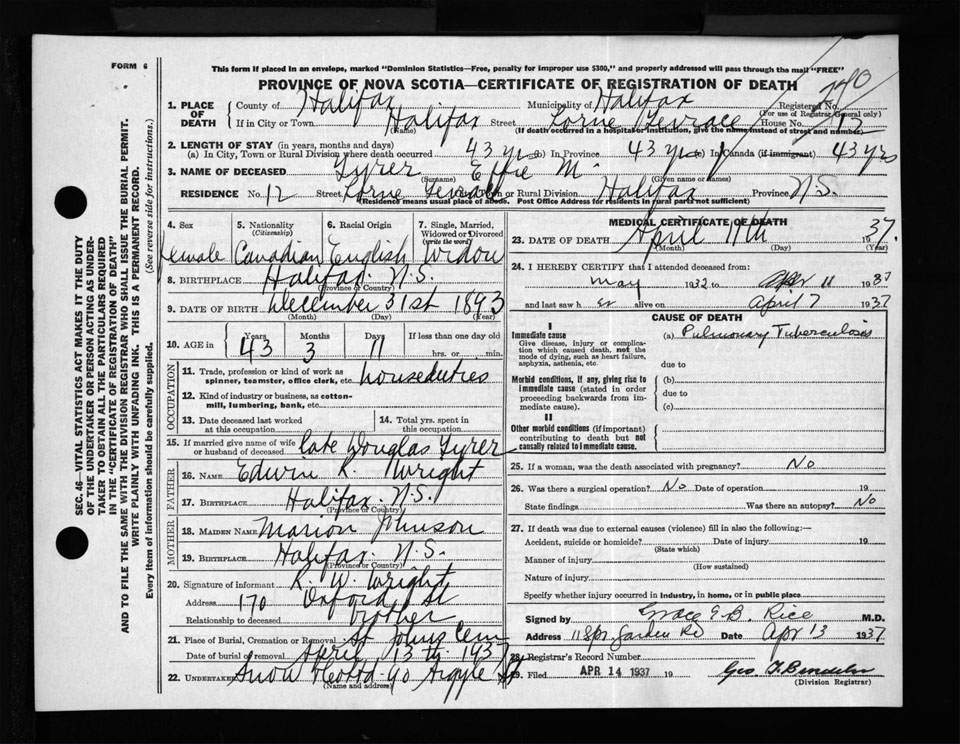 FORM 6
This form if placed in an envelope, marked "Dominion Statistics—Free, penalty for improper use $300," and properly addressed will pass through the mail "FREE"
PROVINCE OF NOVA SCOTIA—CERTIFICATE OF REGISTRATION OF DEATH
1. PLACE OF DEATH
County of Halifax Municipality of Halifax Registered No. 240
(For use of Registrar General only)
If in City or Town Halifax Street Lorne Terrace House No. 12
(Name) (If death occurred in a hospital or institution, give the name instead of street and number)
2. LENGTH OF STAY (in years, months and days)
(a) In City, Town or Rural Division where death occurred 43 yrs (b) In Province 43 yrs (c) In Canada (if immigrant) 43 yrs
3. NAME OF DECEASED Tyrer Effie M.
(Surname) (Given name or names)
RESIDENCE No. 12 Street Lorne Terrace City, Town or Rural Division Halifax Province N.S.
(Residence means usual place of abode. Post Office Address for residents in rural parts not sufficient)
4. Sex 5. Nationality 6. Racial Origin 7. Single, Married,
(Citizenship) Widowed or Divorced
(write the word)
Female Canadian English Widow
8. BIRTHPLACE Halifax. N.S.
(Province or Country)
9. DATE OF BIRTH December 31st 1893
(Month) (Day) (Year)
10. AGE in Years Months Days If less than one day old
43 3 11 hrs. or min.
OCCUPATION
11. Trade, profession or kind of work as
spinner, teamster, office clerk, etc. houseduties
12. Kind of industry or business, as cotton-
mill, lumbering, bank, etc.
13. Date deceased last worked at this occupation 14. Total yrs. spent in this occupation
15. If married give name of wife
or husband of deceased late Douglas Tyrer
FATHER
16. NAME Edwin K. Wright
17. BIRTHPLACE Halifax. N.S.
(Province or Country)
MOTHER
18. MAIDEN NAME Marion Johnson
19. BIRTHPLACE Halifax. N.S.
(Province or Country)
20. Signature of informant K. W. Wright
Address 170 Oxford St
Relationship to deceased brother
21. Place of Burial, Cremation or Removal St Johns Cem
Date of burial or removal April 13th 1937
22. UNDERTAKER Snow 90 Argyle St
(Name and address)
MEDICAL CERTIFICATE OF DEATH
23. DATE OF DEATH April 11th 1937.
(Month) (Day) (Year)
24. I HEREBY CERTIFY that I attended deceased from:
May 1932 to Apr 11 1937
and last saw her alive on April 7 1937
CAUSE OF DEATH
I
Immediate cause (a) Pulmonary Tuberculosis
Give disease, injury or complica-
tion which caused death, not the
mode of dying, such as heart failure,
asphyxia, asthenia, etc.
due to
Morbid conditions, if any, giving rise to
immediate cause (stated in order
proceeding backwards from im-
mediate cause).
(b)
due to
(c)
II
Other morbid conditions (if important)
contributing to death but not
causally related to immediate cause.
25. If a woman, was the death associated with pregnancy? No
26. Was there a surgical operation? No Date of operation 19
State findings Was there an autopsy? No
27. If death was due to external causes (violence) fill in also the following:—
Accident, suicide or homicide? Date of injury 19
(State which)
Manner of injury
(How sustained)
Nature of injury
Specify whether injury occurred in industry, in home, or in public place
Signed by Grace E.B. Rice M.D.
Address 118 Spr. Garden Rd Date Apr 13 1937
28. Registrar's Record Number
29. Filed APR 14 1937 19
(Division Registrar)
SEC. 46—VITAL STATISTICS ACT MAKES IT THE DUTY
OF THE UNDERTAKER OR PERSON ACTING AS UNDER-
TAKER TO OBTAIN ALL THE PARTICULARS REQUIRED
IN THE "CERTIFICATE OF REGISTRATION OF DEATH"
AND TO FILE THE SAME WITH THE DIVISION REGISTRAR WHO SHALL ISSUE THE BURIAL PERMIT.
WRITE PLAINLY WITH UNFADING INK. THIS IS A PERMANENT RECORD.
Every item of information should be carefully supplied. (See reverse side for instructions.)